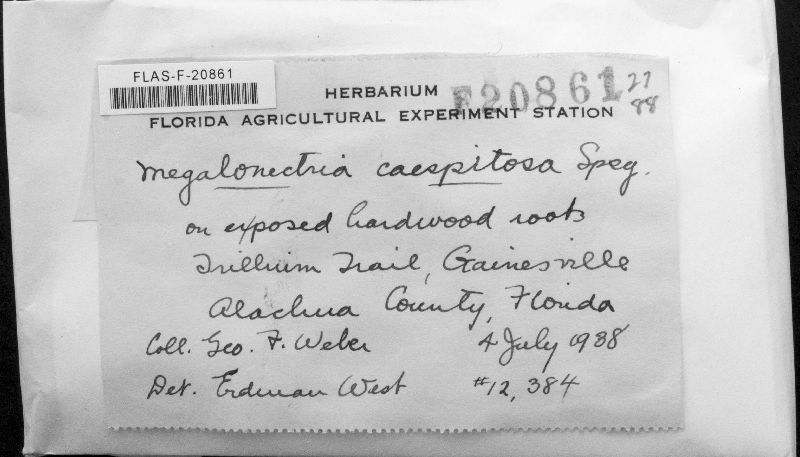 FLAS-F-20861
HERBARIUM F20861 27
88
FLORIDA AGRICULTURAL EXPERIMENT STATION
Megalonectria caespitosa Speg.
on exposed hardwood roots
Trillium Trail, Gainesville
Alachua County, Florida
Coll. Geo. F. Weber 4 July 1938
Det. Erdman West #12,384